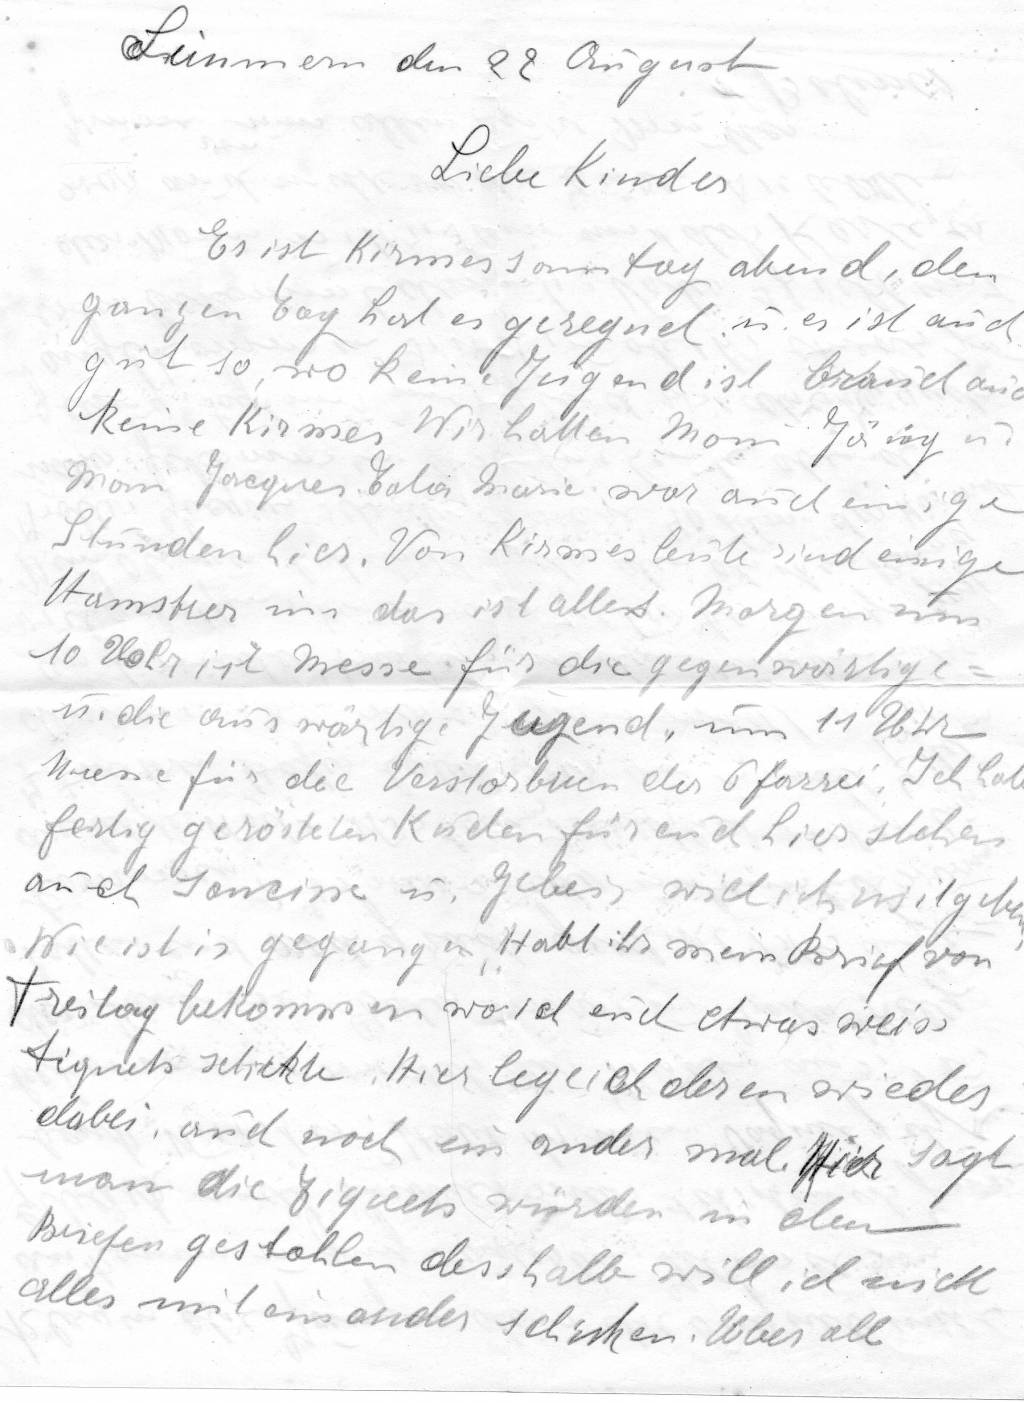 den 22 August
Liebe Kinder
Es ist Kirmessonntag abend, den
ganzen Tag hat es geregnet u. es ist auch
gut so, wo keine Jugend ist brauch auch
keine Kirmes Wir hatten Moni u
Moni Jacques. Tata Marie war auch einige
Stunden hier. Von Kirmesleute sind einige
Hamstrer un das ist alles. Morgen um
10 Uhr ist Messe für die gegenwärtige =
u. die auswärtige Jugend, um 11 Uhr
Messe für die Verstorbnen der Pfarrei. Ich habe
fertig gerösteten Kuchen für euch hier stehen
auch Saucisse u. will ich mitgeben
Wie ist is gegangen, Habt ihr mein Brief von
Freitag bekommen wo ich euch etwas weiss
tiquets schickte. Hier lege ich deren wieder
dabei. auch noch ein ander mal. Hier sagt
man die Tiquets würden in den
Briefen gestohlen desshalb will ich nicht
alles mit einander schicken. Uberall